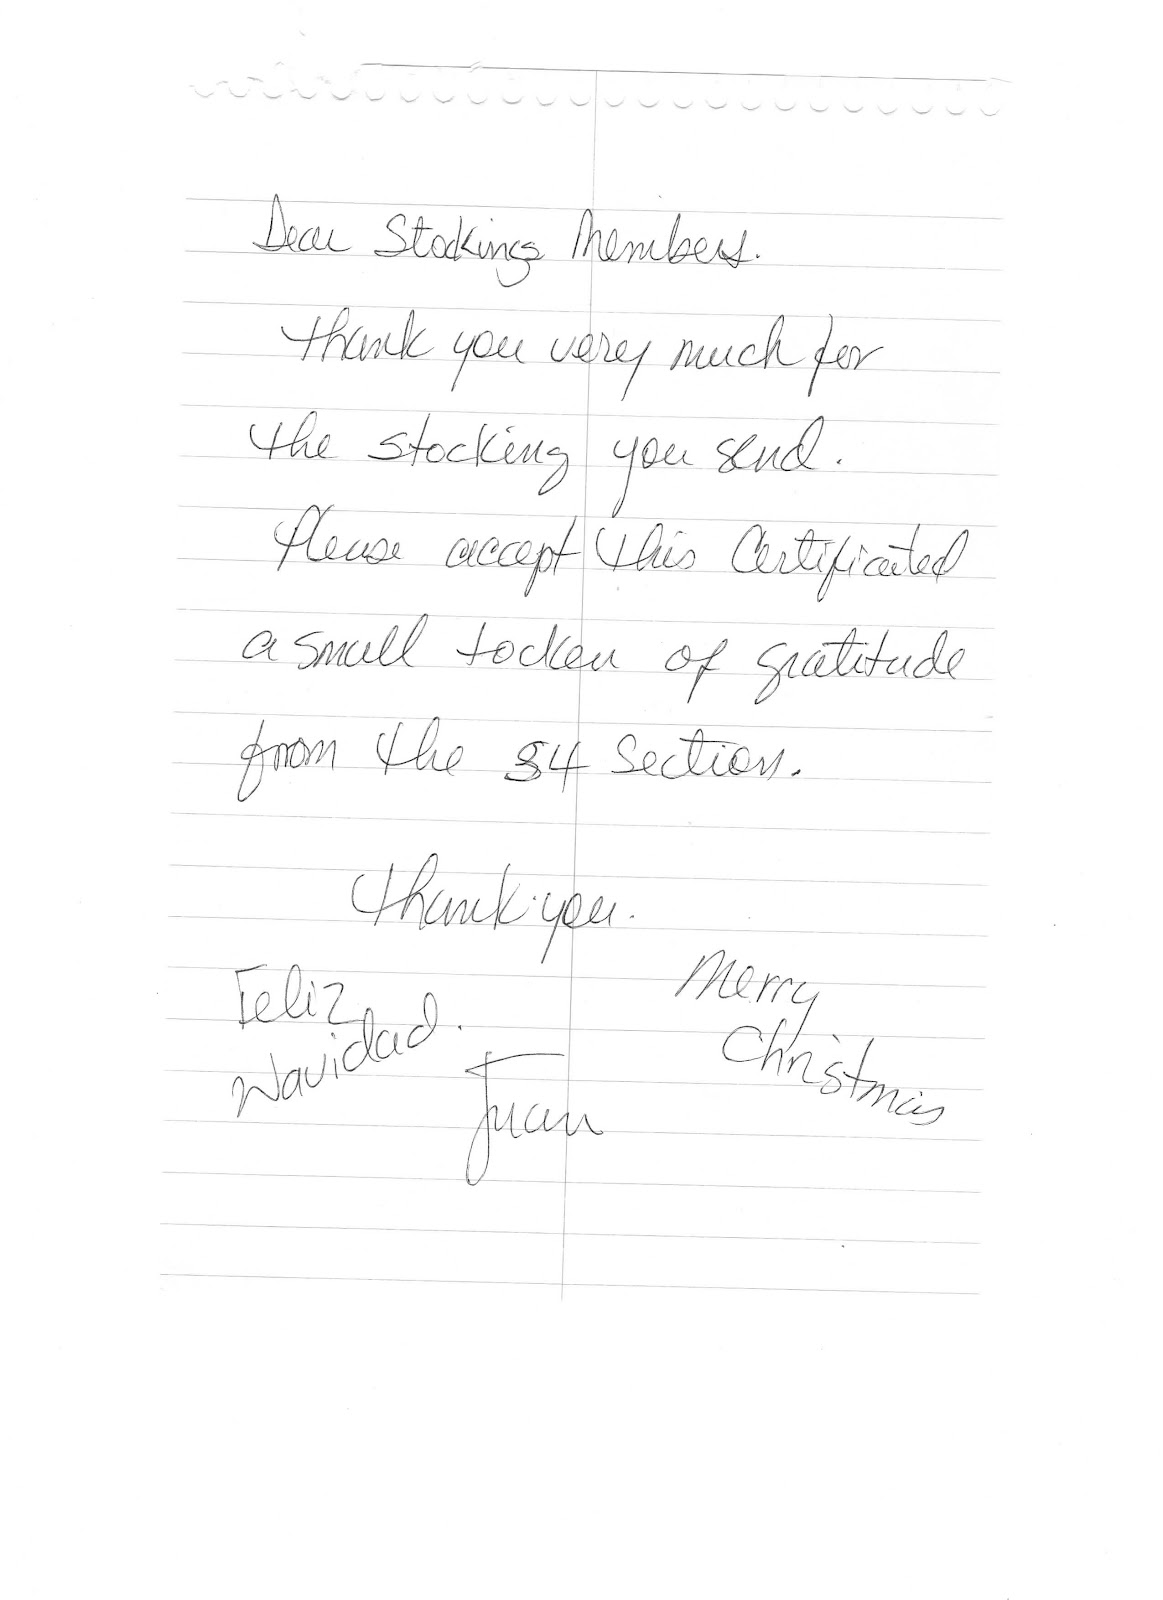 Dear Stockings Members.
thank you very much for
the stocking you send.
Please accept this Certificated
a small tocken of gratitude
from the S4 Section.
thank you.
Merry
Christmas
Feliz
Navidad.
Juan